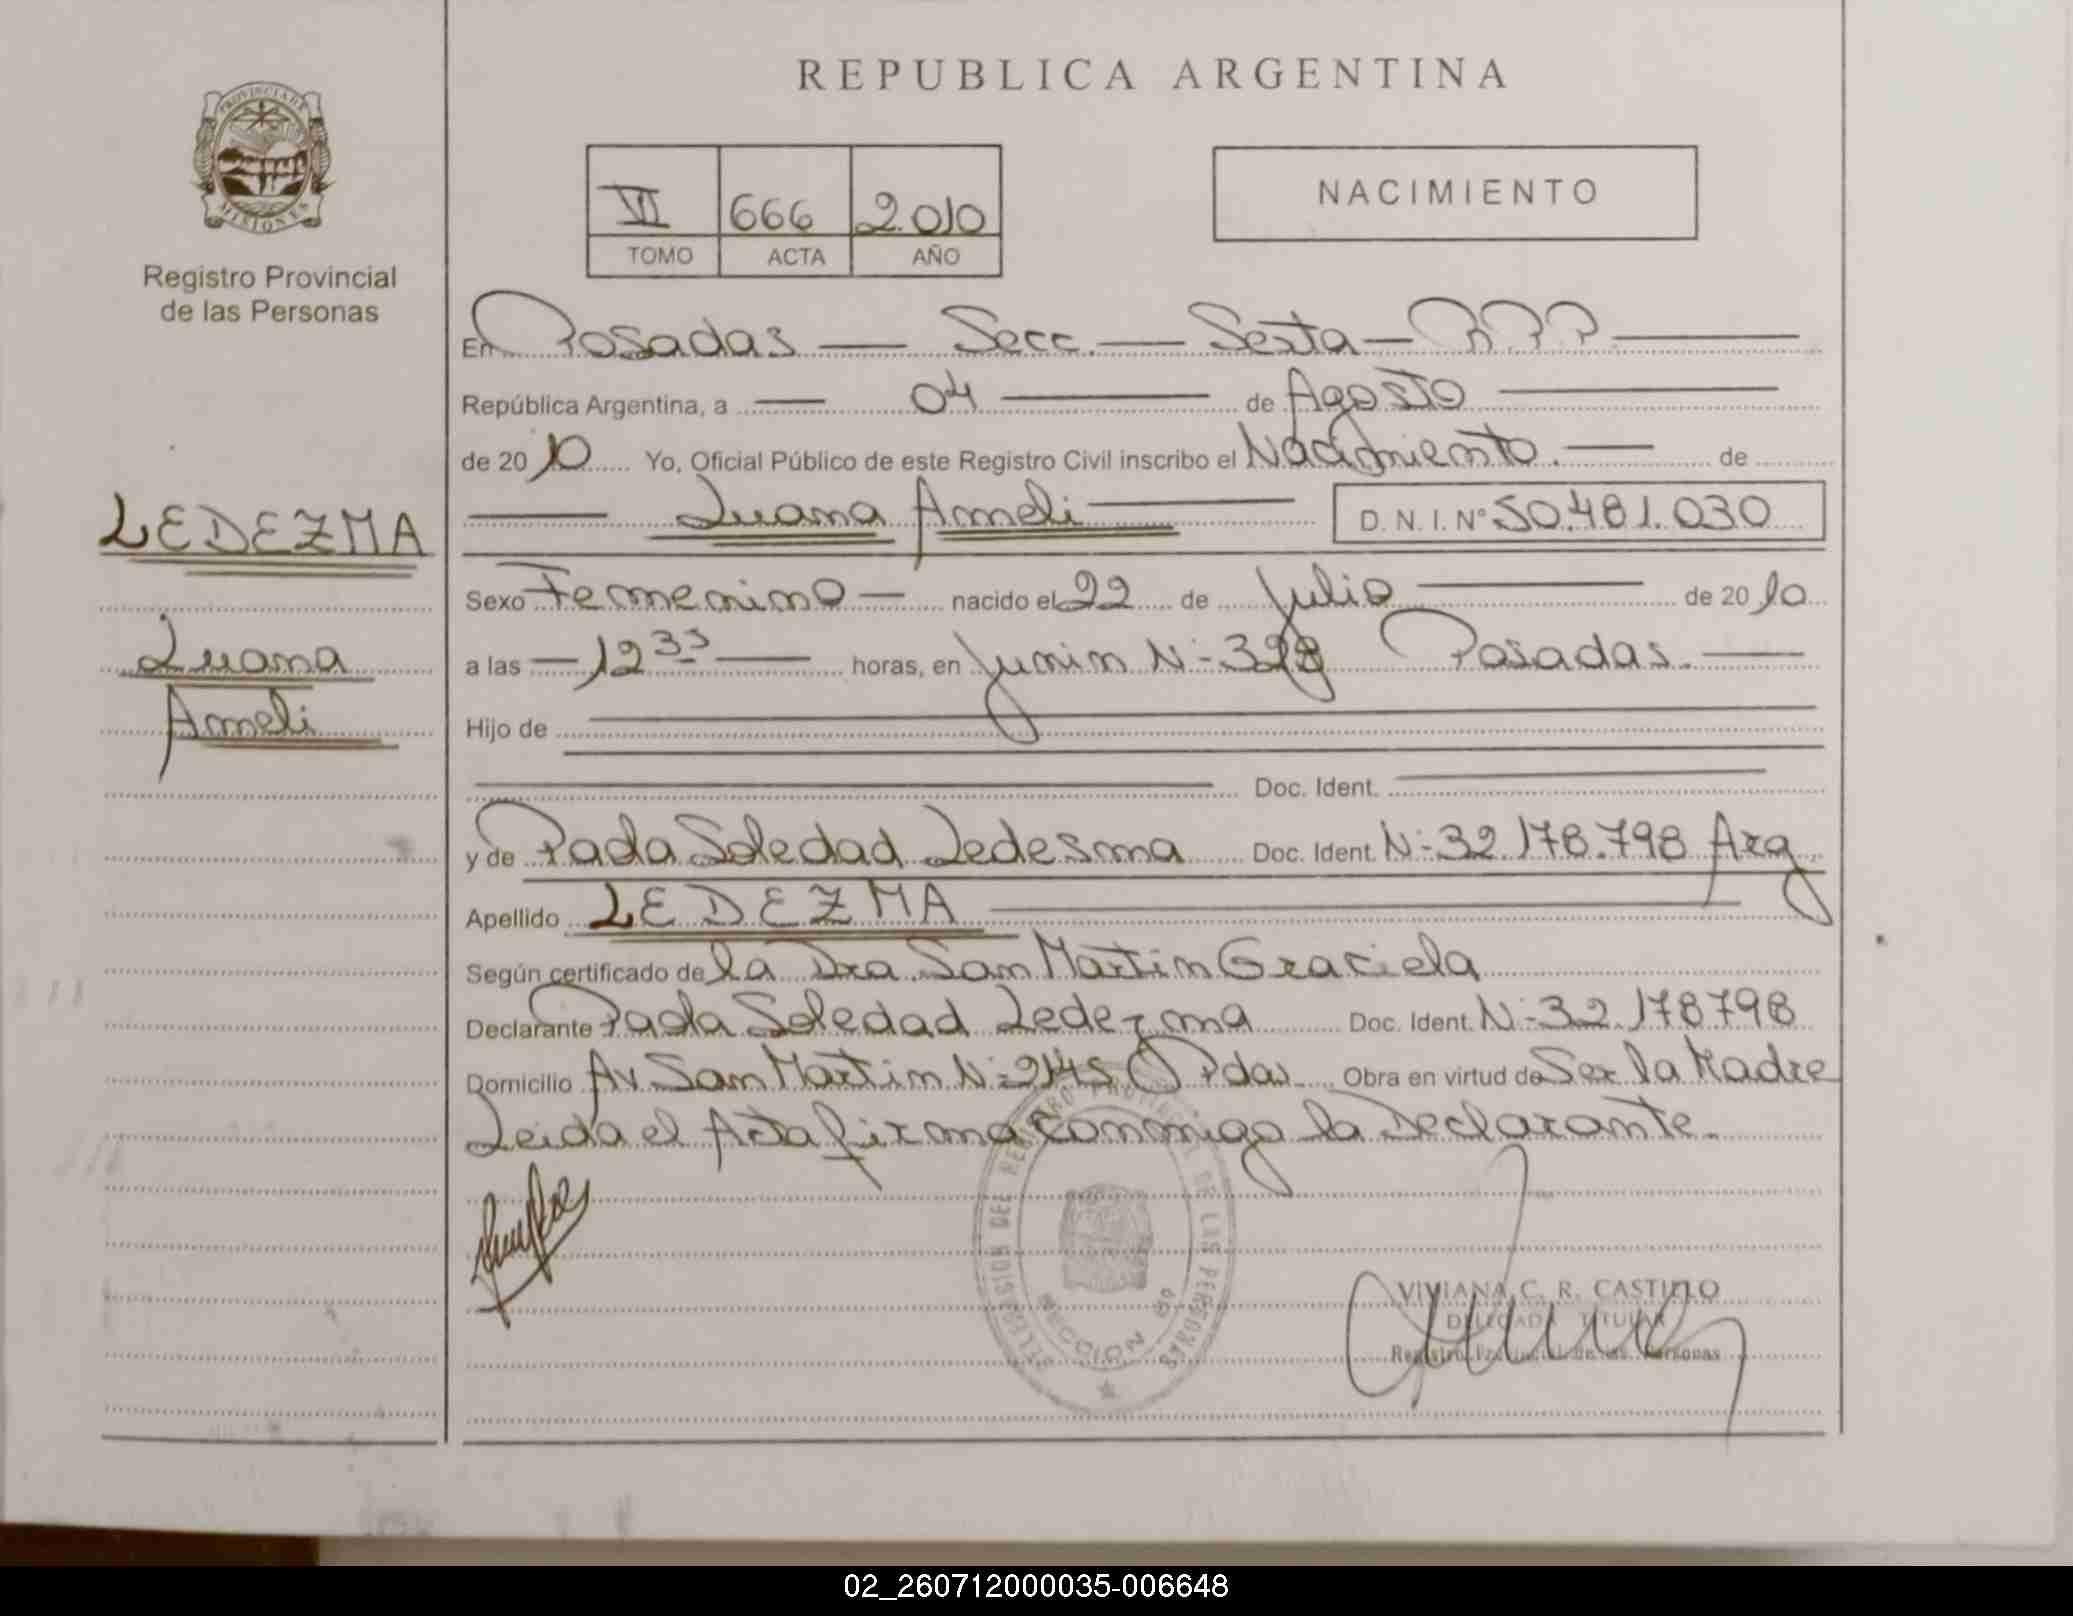 REPUBLICA ARGENTINA
PROVINCIA DE MISIONES
Registro Provincial
de las Personas
VI 666 2010
TOMO ACTA AÑO
NACIMIENTO
En Posadas — Secc. — Sexta — R.P.P.
República Argentina, a — 04 — de Agosto
de 2010 Yo, Oficial Público de este Registro Civil inscribo el Nacimiento. — de
Luana Ameli — D. N. I. N° 50.481.030
LEDEZMA
Luana
Ameli
Sexo Femenino — nacido el 22 de Julio — de 2010
a las — 12 35 — horas, en Junin N- Posadas. —
Hijo de
Doc. Ident.
y de Paola Soledad Ledesma Doc. Ident. N-32.178.798 Arg
Apellido LEDEZMA
Según certificado de la Dra. San Martin Graciela
Declarante Paola Soledad Ledezma Doc. Ident. N-32.178798
Domicilio Av San Martin N-2145 Pdas. Obra en virtud de Ser la Madre
Leida el Acta firma conmigo la Declarante.
DEL REGISTRO PROVINCIAL DE LAS PERSONAS
SECCION 6º
VIVIANA C. R. CASTILLO
DELEGADA TITULAR
Registro Provincial de las Personas
02_260712000035-006648